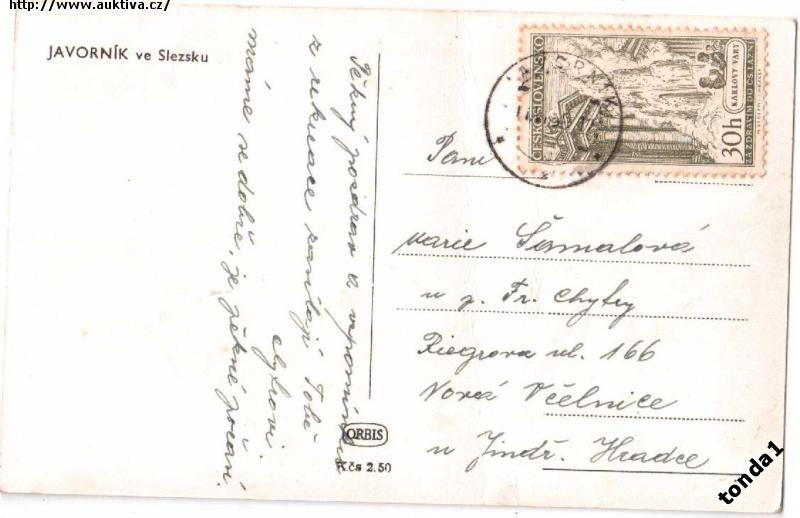 http://www.auktiva.cz/
JAVORNÍK ve Slezsku
Pěkný pozdrav a vzpomínku
z rekreace zasílají Tobě
Chytrovi
máme se dobře, je pěkné počasí.
ORBIS
Kčs 2.50
ČESKOSLOVENSKO
30h
KARLOVY VARY
ZA ZDRAVÍM DO ČS. LÁZNÍ
JAVORNÍK
Paní
Marie Šamalová
u p. Fr. Chytry
Riegrova ul. 166
Nová Včelnice
u Jindř. Hradce
tonda1